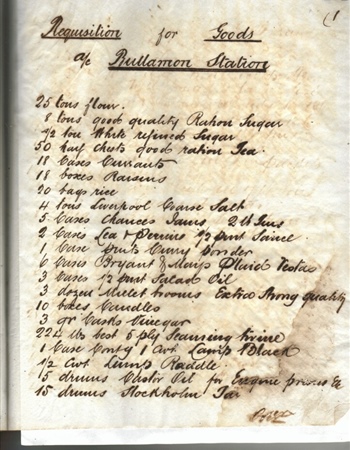 Requisition for Goods
a/c Bullamon Station
25 tons flour.
8 tons good quality Ration Sugar
1/2 ton White refined Sugar
50 half chests good ration Tea
18 Cases Currants
18 boxes Raisins
20 bags rice
4 tons Liverpool Coarse Salt
5 Cases Chances Jams 2 lb Tins
2 Cases Lea & Perrins 1/2 pint
1 Case pints Curry Powder
6 Cases Bryant & Mays Plaid Vestas
3 Cases 1/2 pint Salad Oil
3 dozen Millet brooms Extra Strong quality
10 boxes Candles
3 qr Casks Vinegar
best 5 ply Seaming twine
1 Case 1 Cwt Lamp Black
1/2 Cwt Lump Raddle
15 drums Castor Oil for Engine
15 drums Stockholm Tar